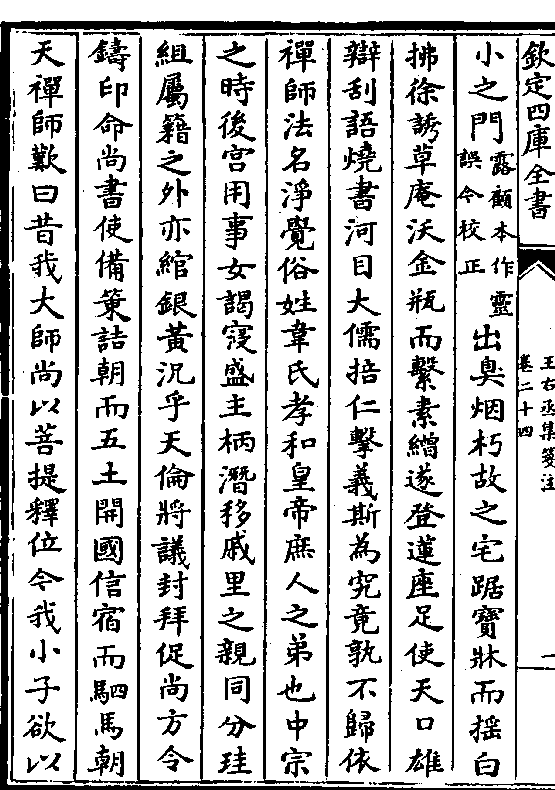 欽定四庫全書
王右丞集箋注
卷二十四
一
小之門露顧本作靈誤今校正出臭烟朽故之宅踞寶牀而揺白
拂徐誘草庵沃金瓶而繫素繒遂登蓮座足使天口雄
辯刮語燒書河目大儒掊仁擊義斯為究竟孰不歸依
禪師法名淨覺俗姓韋氏孝和皇帝庶人之弟也中宗
之時後宫用事女謁寖盛主柄潛移戚里之親同分珪
組屬籍之外亦綰銀黃況乎天倫將議封拜促尚方令
鑄印命尚書使備䇿詰朝而五土開國信宿而駟馬朝
天禪師歎曰昔我大師尚以菩提釋位今我小子欲以